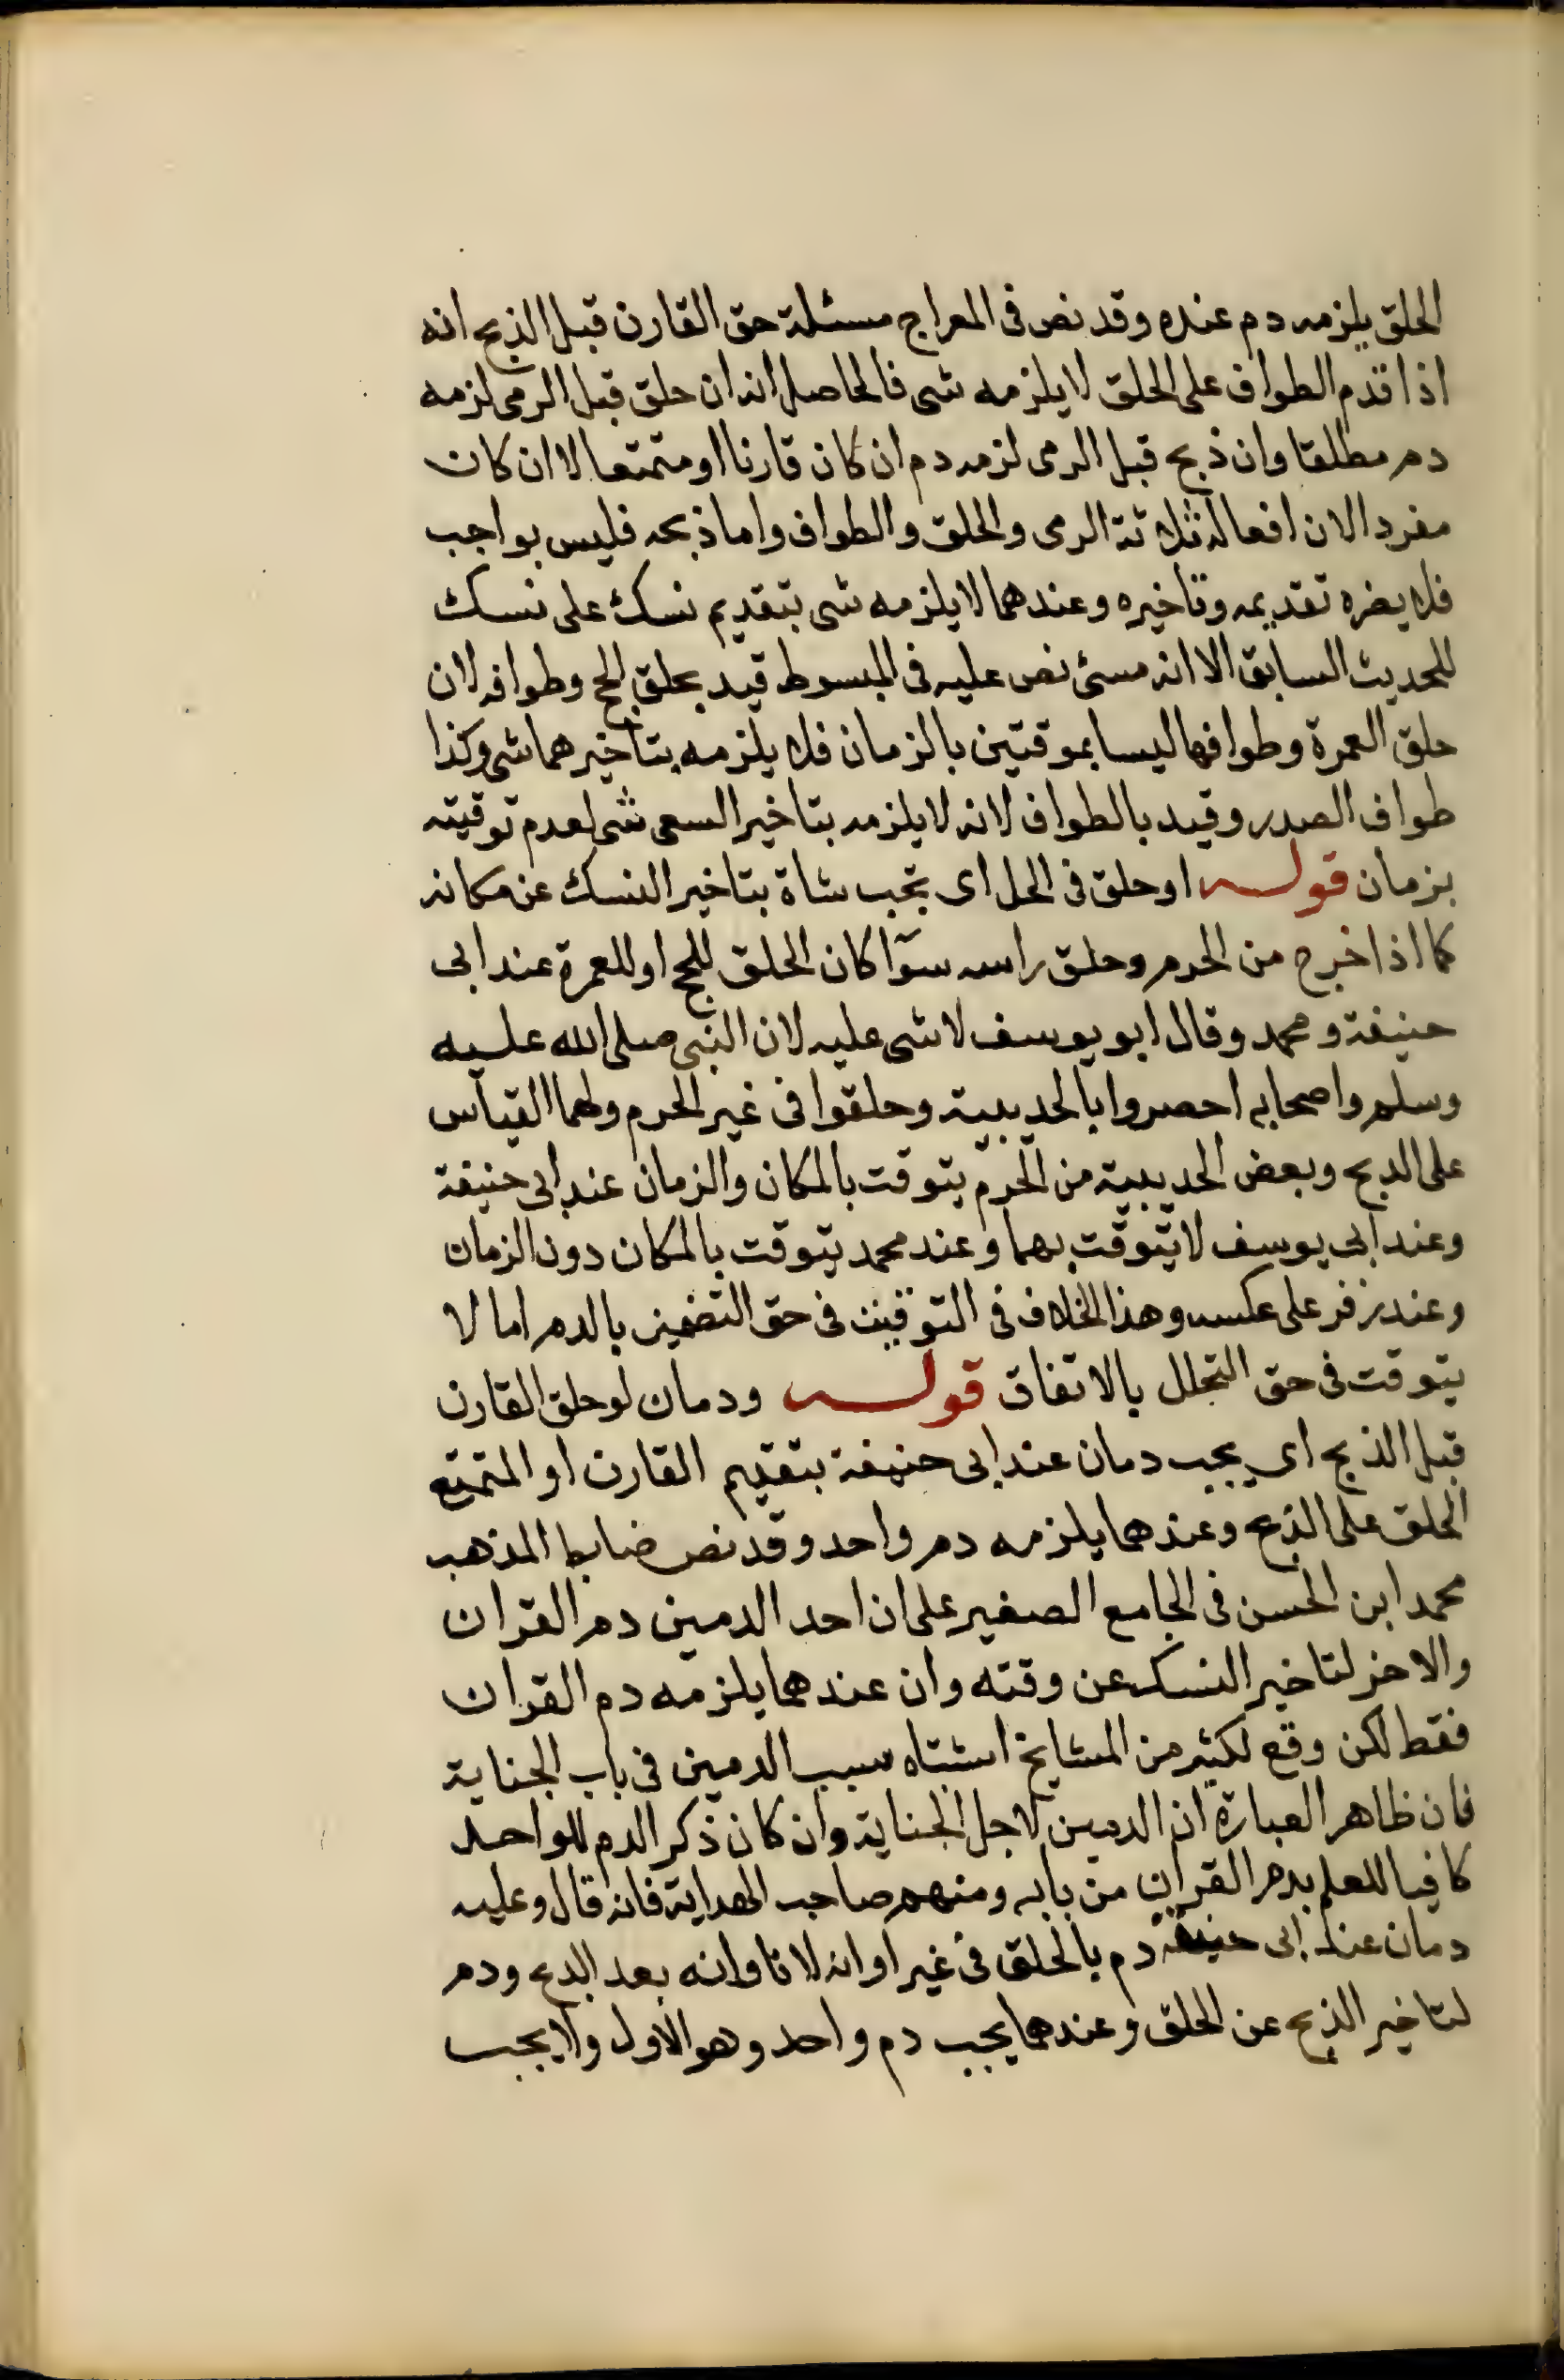 الحلق يلزمه دم عنده وقد نص فى المعراج مسئلة حق القارن قبل الذبح انه
اذا قدم الطواف على الحلق لا يلزمه شى فالحاصل انه ان حلق قبل الرمى لزمه
دم مطلقا وان ذبح قبل الرمى لزمه دم ان كان قارنا او متمتعا لا ان كان
مفردا لان افعاله ثلاثة الرمى والحلق والطواف واما ذبحه فليس بواجب
فلا يضره تقديمه وتاخيره وعندهما لا يلزمه شى بتقديم نسك على نسك
للحديث السابق الا انه مسئ نص عليه فى المبسوط قيد بحلق الحج وطوافه لان
حلق العمرة وطوافها ليسا بموقتين بالزمان فلا يلزمه بتاخيرهما شى وكذا
طواف الصدر وقيد بالطواف لانه لا يلزمه بتاخير السعى شى لعدم توقيته
بزمان قوله او حلق فى الحل اى تجب شاة بتاخير النسك عن مكانه
كما اذا خرج من الحرم وحلق راسه سوآ كان الحلق للحج او للعمرة عند ابى
حنيفة ومحمد وقال ابو يوسف لا شى عليه لان النبى صلى الله عليه
وسلم واصحابه احصروا بالحديبية وحلقوا فى غير الحرم ولهما القياس
على الذبح وبعض الحديبية من الحرم يتوقت بالمكان والزمان عند ابى حنيفة
وعند ابى يوسف لا يتوقت بهما وعند محمد يتوقت بالمكان دون الزمان
وعند زفر على عكسه وهذا الخلاف فى التوقيت فى حق التضمين بالدم اما لا
يتوقت فى حق التحلل بالاتفاق قوله ودمان لو حلق القارن
قبل الذبح اى يجب دمان عند ابى حنيفة بتقديم القارن او المتمتع
الحلق على الذبح وعندهما يلزمه دم واحد وقد نص ضابط المذهب
محمد ابن الحسن فى الجامع الصغير على ان احد الدمين دم القران
والاخر لتاخير النسك عن وقته وان عندهما يلزمه دم القران
فقط لكن وقع لكثير من المشايخ اشتباه سبب الدمين فى باب الجناية
فان ظاهر العبارة ان الدمين لاجل الجناية وان كان ذكر الدم للواحد
كافيا للعلم بدم القران من بابه ومنهم صاحب الهداية فانه قال وعليه
دمان عند ابى حنيفة دم بالحلق فى غير اوانه لان اوانه بعد الذبح ودم
لتاخير الذبح عن الحلق وعندهما يجب دم واحد وهو الاول ولا يجب